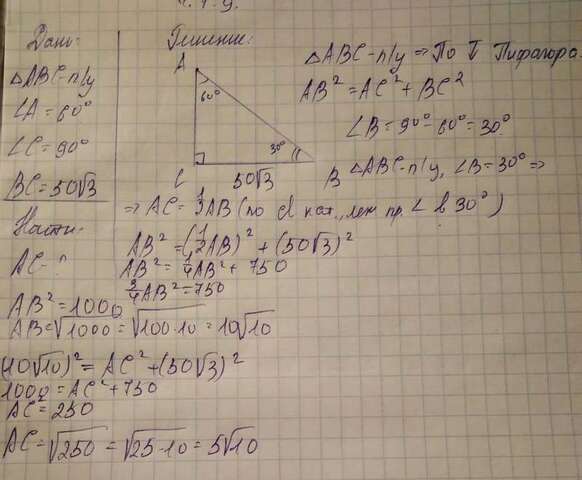 Дано:
△ABC-п/у
∠A=60°
∠C=90°
BC=50√3
Найти:
AC-?
Решение:
A
60°
30°
C
50√3
B
△ABC-п/у ⇒ По Т Пифагора.
AB²=AC²+BC²
∠B=90°-60°=30°
△ABC-п/у, ∠B=30° ⇒
⇒ AC=½AB (по кат., леж пр. ∠ в 30°)
AB²=(½AB)²+(50√3)²
AB²=¼AB²+750
¾AB²=750
AB²=1000
AB=√1000=√100·10=10√10
(10√10)²=AC²+(50√3)²
1000=AC²+750
AC²=250
AC=√250=√25·10=5√10